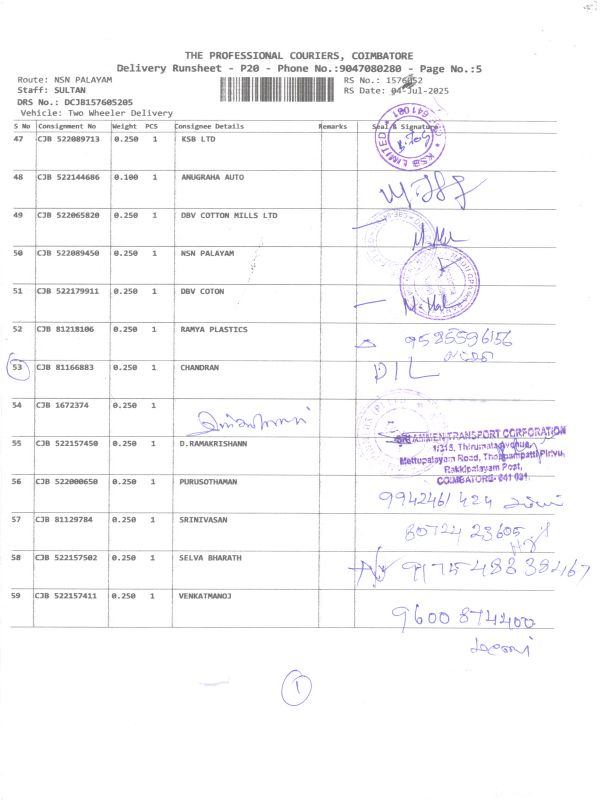 THE PROFESSIONAL COURIERS, COIMBATORE
Delivery Runsheet - P20 - Phone No.:9047080280 - Page No.:5
Route: NSN PALAYAM RS No.: 1576052
Staff: SULTAN RS Date: 04-Jul-2025
DRS No.: DCJB157605205
Vehicle: Two Wheeler Delivery
S No Consignment No Weight PCS Consignee Details Remarks Seal & Signature
47 CJB 522089713 0.250 1 KSB LTD
KSB LIMITED * 641 061 *
48 CJB 522144686 0.100 1 ANUGRAHA AUTO
49 CJB 522065820 0.250 1 DBV COTTON MILLS LTD
50 CJB 522089450 0.250 1 NSN PALAYAM
51 CJB 522179911 0.250 1 DBV COTON
52 CJB 81218106 0.250 1 RAMYA PLASTICS 9585596156
53 CJB 81166883 0.250 1 CHANDRAN DIL
54 CJB 1672374 0.250 1
TRANSPORT CORPORATION
1/213, Thirumalai Avenue,
55 CJB 522157450 0.250 1 D.RAMAKRISHANN
Mettupalayam Road, Thoppampatti Pirivu,
Rakkipalayam Post,
COIMBATORE- 641 031.
56 CJB 522000650 0.250 1 PURUSOTHAMAN 9942461424
57 CJB 81129784 0.250 1 SRINIVASAN 80724 23605
58 CJB 522157502 0.250 1 SELVA BHARATH
59 CJB 522157411 0.250 1 VENKATMANOJ 9600874400
1